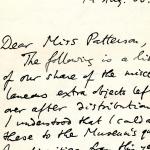 Aug.
Dear Miss Patterson,
The following is a li
of our share of the misce
laneous extra objects lef
over after distribution
I understood that I could a
these to the Museum's
for this